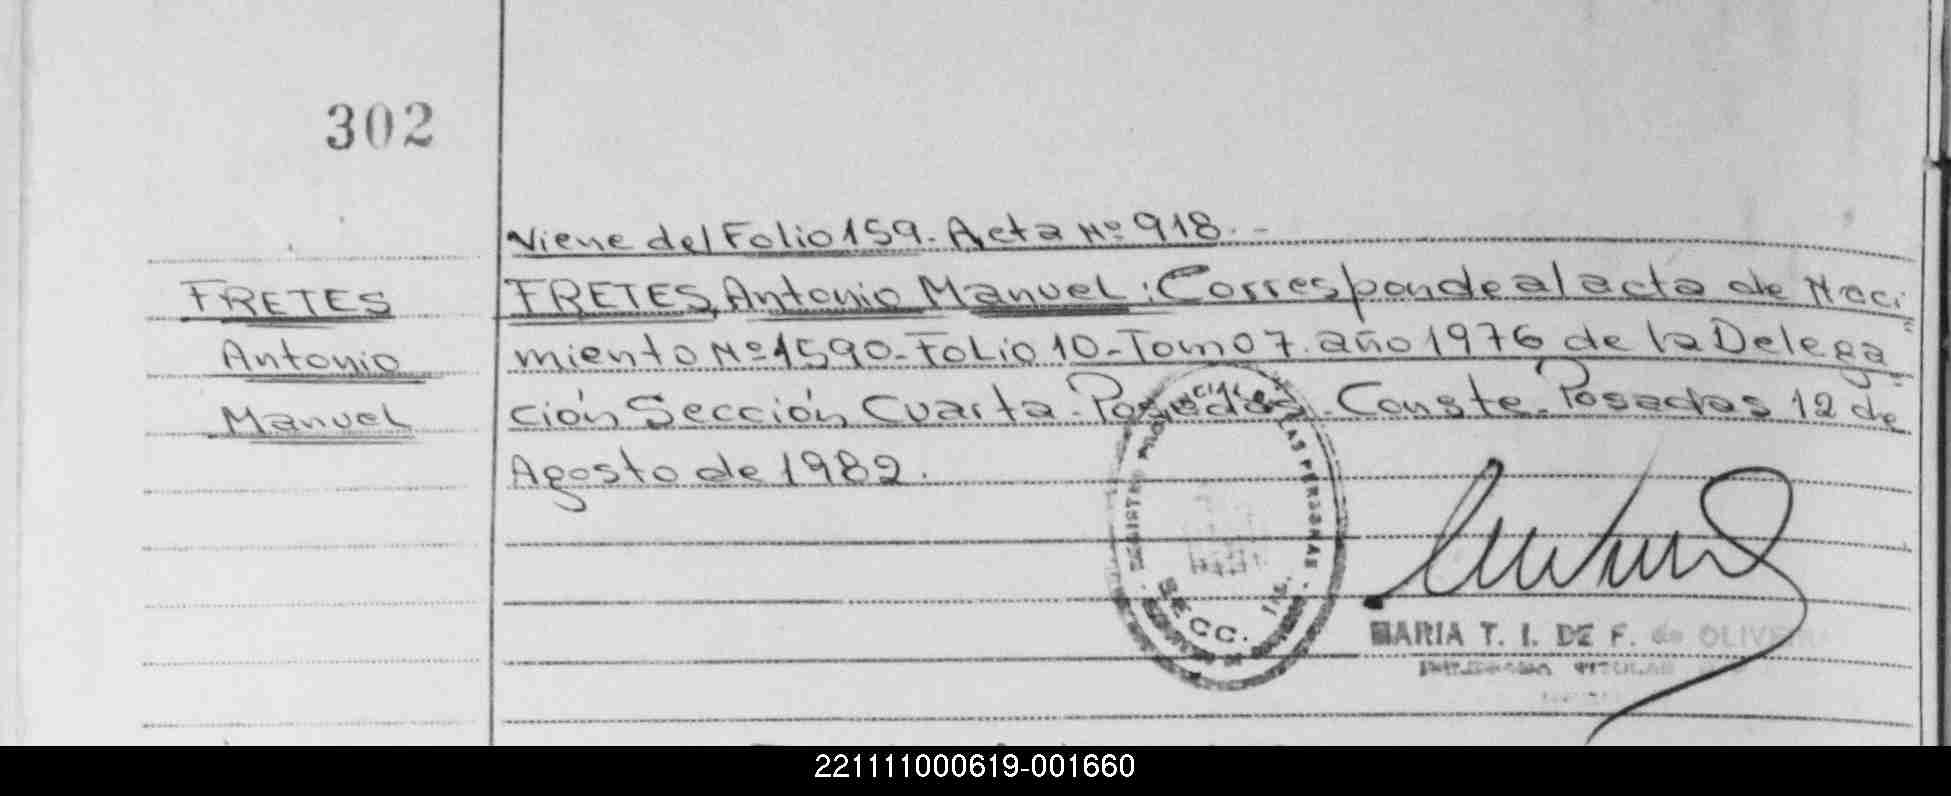 302
Viene del Folio 159. Acta Nº 918.-
FRETES
FRETES, Antonio Manuel: Corresponde al acta de Naci
Antonio
miento Nº 1590-Folio 10-Tomo 7. año 1976 de la Delega
Manuel
ción Sección Cuarta-Posadas.-Conste-Posadas 12 de
Agosto de 1982.
REGISTRO PROVINCIAL DE LAS PERSONAS
SECC. 1RA.
MARIA T. I. DE F. de OLIVEIRA
TITULAR
221111000619-001660